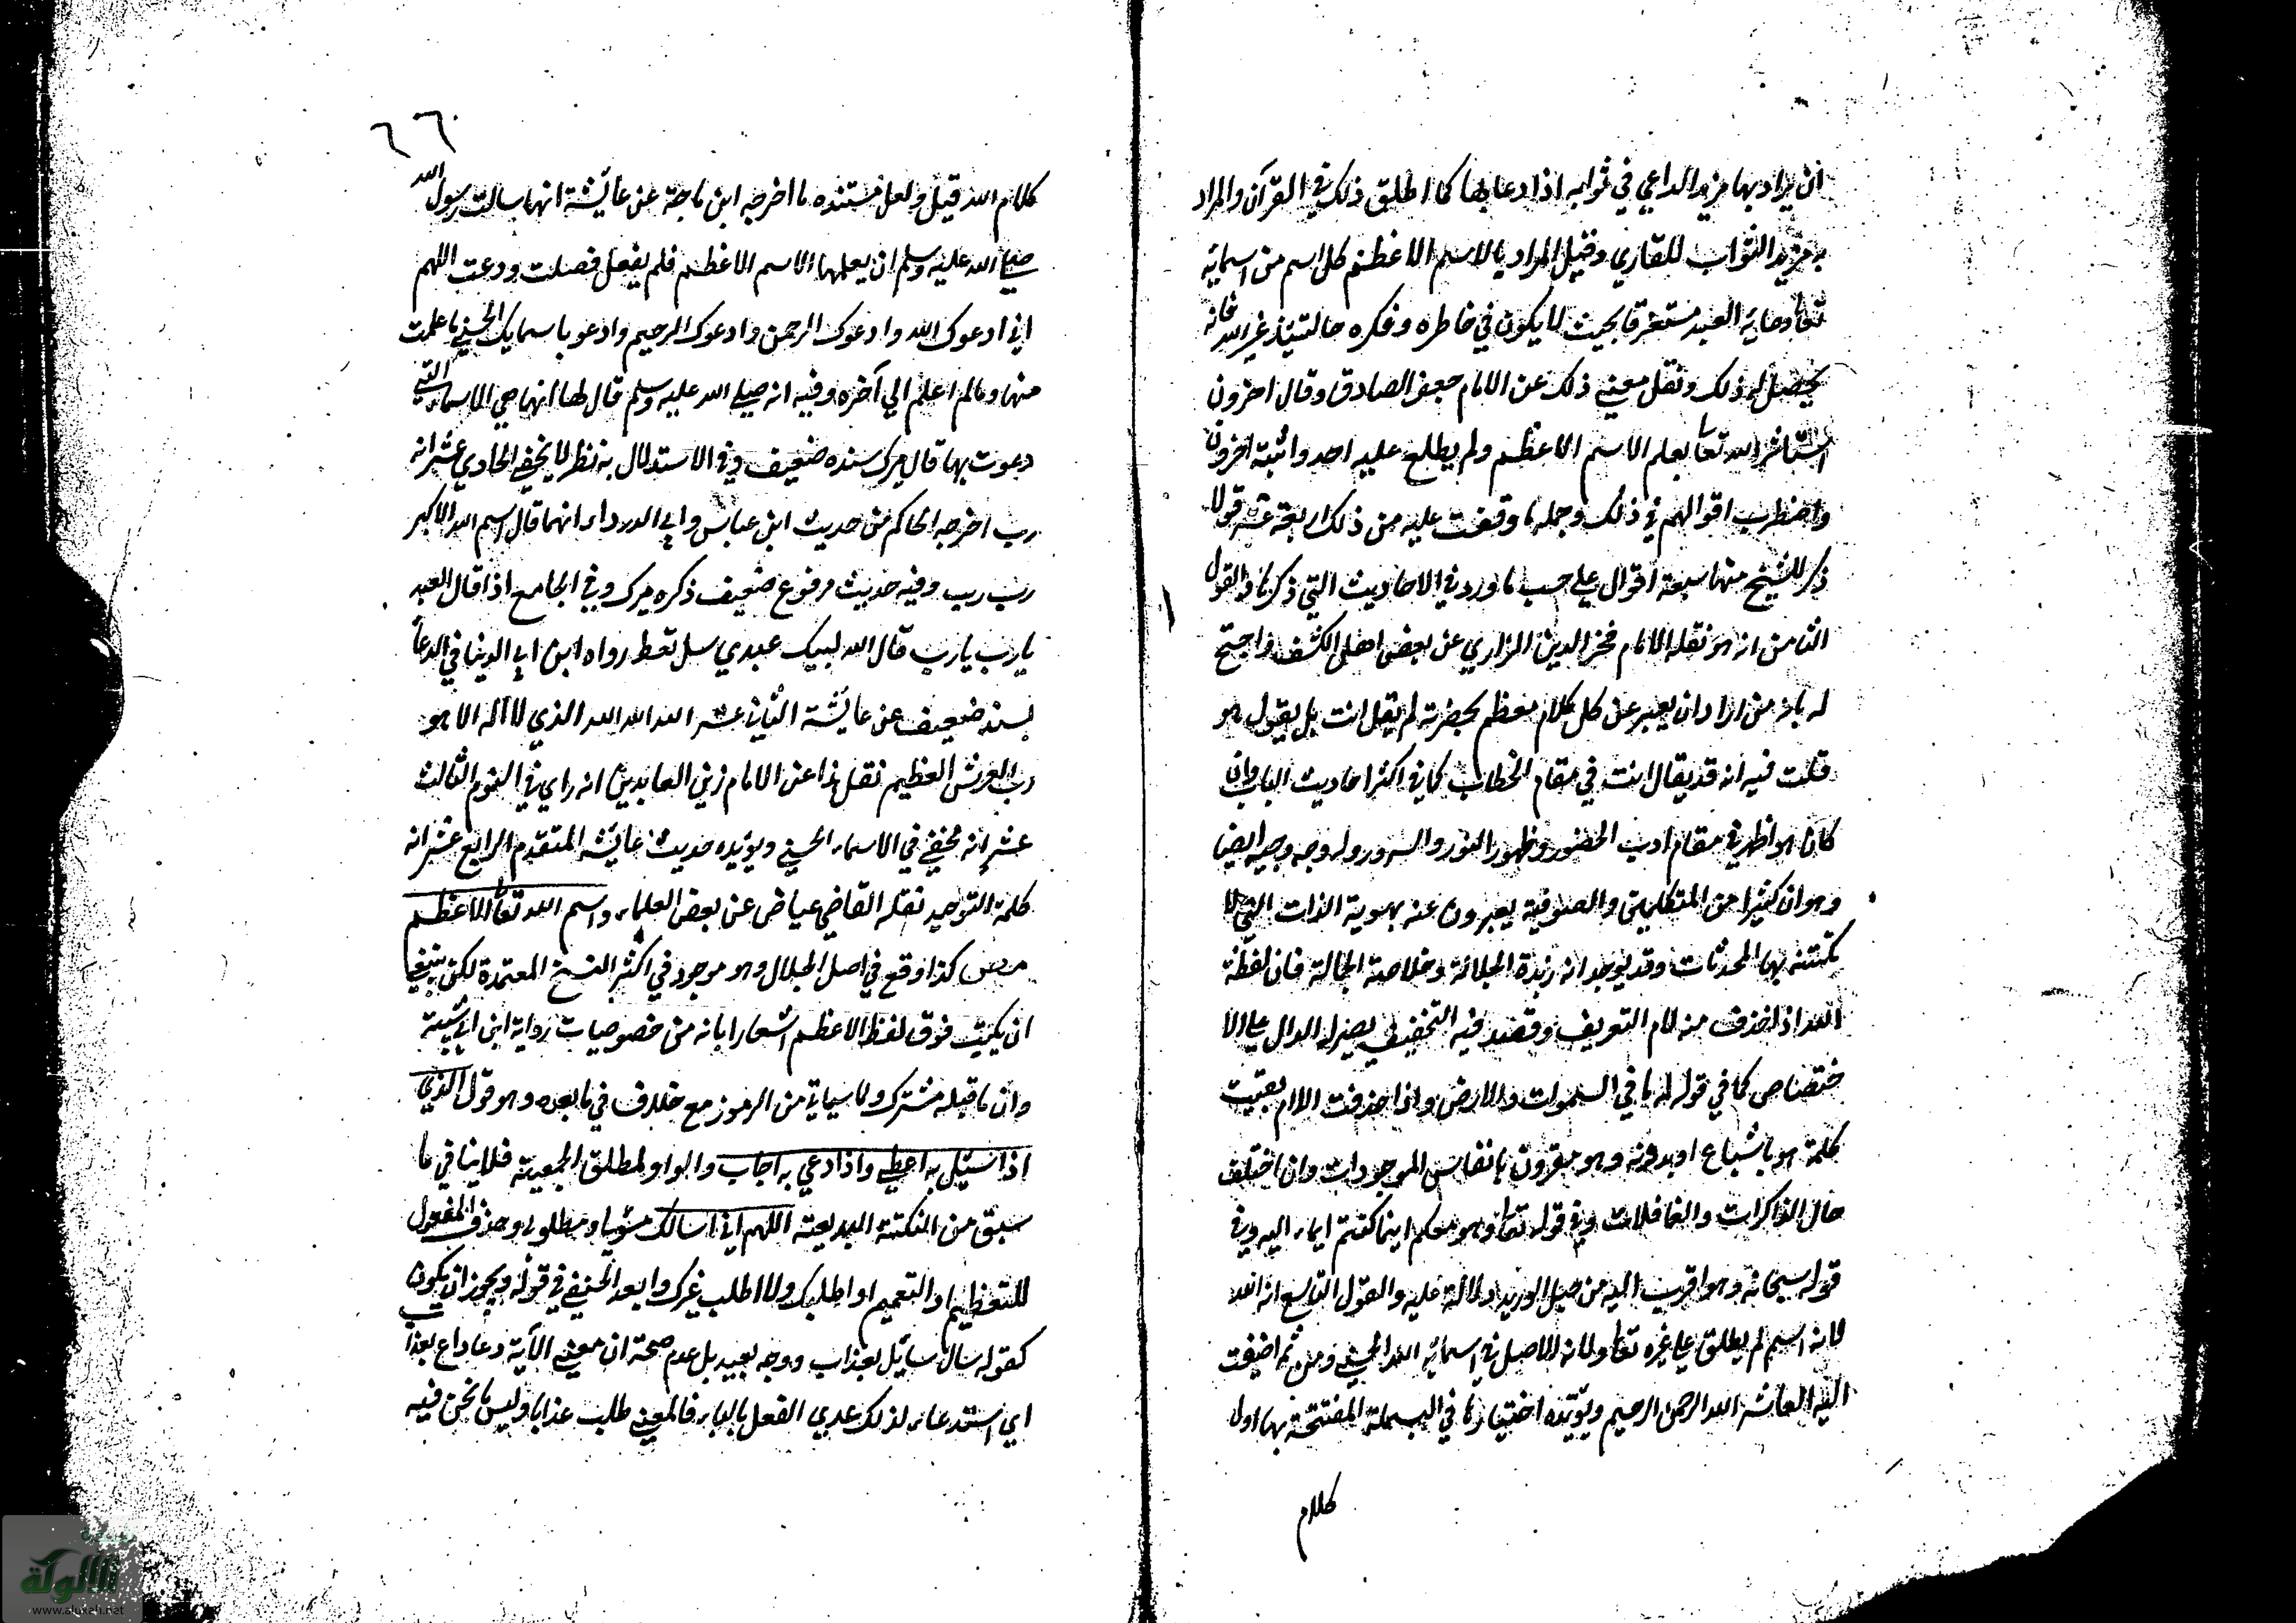 ان يراد بها مزيد الداعي في ثوابه اذا دعا بها كما اطلق ذلك في القرآن والمراد
به مزيد الثواب للقاري وقيل المراد بالاسم الاعظم كل اسم من اسمائه
تعالى دعا به العبد مستغرقا بحيث لا يكون في خاطره وفكره حالتئذ غير الله فانه
يحصل له ذلك ونقل معنى ذلك عن الامام جعفر الصادق وقال اخرون
استأثر الله تعالى بعلم الاسم الاعظم ولم يطلع عليه احد واثبته اخرون
واضطرب اقوالهم في ذلك وجملة ما وقفت عليه من ذلك اربعة عشر قولا
ذكر الشيخ منها سبعة اقوال على حسب ما ورد في الاحاديث التي ذكرها والقول
الثامن انه هو نقله الامام فخر الدين الرازي عن بعض اهل الكشف واحتج
له بان من اراد ان يعبر عن كل كلام معظم بحضرته لم يقل انت بل يقول هو
قلت فيه انه قد يقال انت في مقام الخطاب كما في اكثر احاديث الباب وان
كان هو اظهر في مقام ادب الحضور وظهور النور والسرور وله وجه وجيه ايضا
وهو ان كثيرا من المتكلمين والصوفية يعبرون عنه بهوية الذات التي لا
تكتنه بها المحدثات وقد يوجد انه زبدة الجلالة وخلاصة الجالة فان لفظة
الله اذا حذف منه لام التعريف وقصد فيه التخفيف يصير له الدال على الا
ختصاص كما في قوله له ما في السموات والارض واذا حذفت اللام بقيت
كلمة هو باشباع او بدونه وهو مقرون بانفاس الموجودات وان اختلف
حال الذاكرات والغافلات وفي قوله تعالى وهو معكم اينما كنتم ايماء اليه وفي
قوله سبحانه وهو اقرب اليه من حبل الوريد دلالة عليه والقول التاسع انه الله
لانه اسم لم يطلق على غيره تعالى ولانه الاصل في اسمائه الله الحسنى ومن ثم اضيفت
اليه العاشر الله الرحمن الرحيم ويؤيده اختيارها في البسملة المفتتحة بها اول
كلام
٦٦
كلام الله قيل ولعل مستنده ما اخرجه ابن ماجة عن عائشة انها سالت رسول الله
صلى الله عليه وسلم ان يعلمها الاسم الاعظم فلم يفعل فصلت ودعت اللهم
اني ادعوك الله وادعوك الرحمن وادعوك الرحيم وادعو باسمايك الحسنى ما علمت
منها ومالم اعلم الي آخره وفيه انه صلى الله عليه وسلم قال لها انها هي الاسماء التي
دعوت بها قال ميرك سنده ضعيف وفي الاستدلال به نظر لا يخفى الحادي عشر انه
رب اخرجه الحاكم من حديث ابن عباس وابي الدرداء انهما قال اسم الله الاكبر
رب رب وفيه حديث مرفوع ضعيف ذكره ميرك وفي الجامع اذا قال العبد
يارب يارب قال الله لبيك عبدي سل تعط رواه ابن ابي الدنيا في الدعا
بسند ضعيف عن عايشة الثاني عشر الله الله الله الذي لا اله الا هو
رب العرش العظيم نقل هذا عن الامام زين العابدين انه راي في النوم الثالث
عشر انه مخفي في الاسماء الحسنى ويؤيده حديث عايشة المتقدم الرابع عشر انه
كلمة التوحيد نقله القاضي عياض عن بعض العلماء واسم الله تعالى الاعظم
مص كذا وقع في اصل الجلال وهو موجود في اكثر النسخ المعتمدة لكن ينبغي
ان يكتب فوق لفظ الاعظم اشعارا بانه من خصوصيات رواية ابن ابي شيبة
وان ما قبله مشترك ولما سياتي من الرموز مع خلاف في ما بعده وهو قول الذي
اذا سئل به اعطى واذا دعي به اجاب والواو لمطلق الجمعية فلا ينافي ما
سبق من النكتة البديعة اللهم اني اسالك مسؤيا ومطلوبي وحذف المفعول
للتعظيم او التعميم او اطلبك ولا اطلب غيرك وابعد الحنفي في قوله ويجوز ان يكون
كقوله سال سائل بعذاب ووجه بعيد بل عدم صحة ان معنى الآية دعا داع بعذاب
اي استدعاء لذلك عدي الفعل بالباء فالمعنى طلب عذابا وليس ما نحن فيه
الألوكة
www.alukah.net